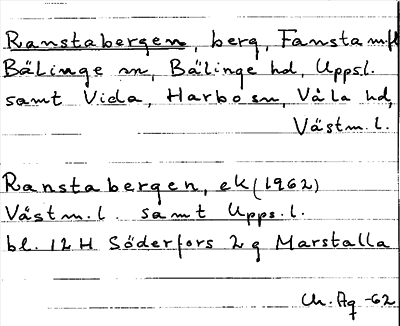 Ranstabergen, berg, Fansta mfl
Bälinge sn, Bälinge hd, Uppsl.
samt Vida, Harbo sn, Våla hd,
Västm. l.
Ranstabergen, ek (1962)
Västm. l. samt Upps. l.
bl. 12 H Söderfors 2 g Marstalla
Ch. Ag -62